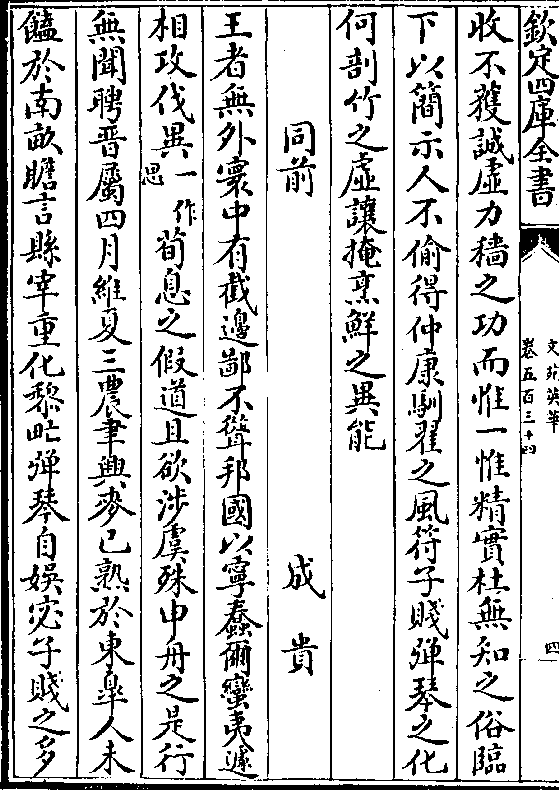 欽定四庫全書
文苑英華
卷五百三十四
四
收不獲誠虛力穡之功而惟一惟精實杜無知之俗臨
下以簡示人不偷得仲康馴翟之風符子賤彈琴之化
何剖竹之虛讓掩烹鮮之異能
同前
成貴
王者無外寰中有截邊鄙不聳邦國以寧蠢爾蠻夷遽
相攻伐異一作思荀息之假道且欲涉虞殊申舟之是行
無聞聘晉屬四月維夏三農聿興麥已熟於東臯人未
饁於南畝瞻言縣宰重化黎甿彈琴自娛宓子賤之多